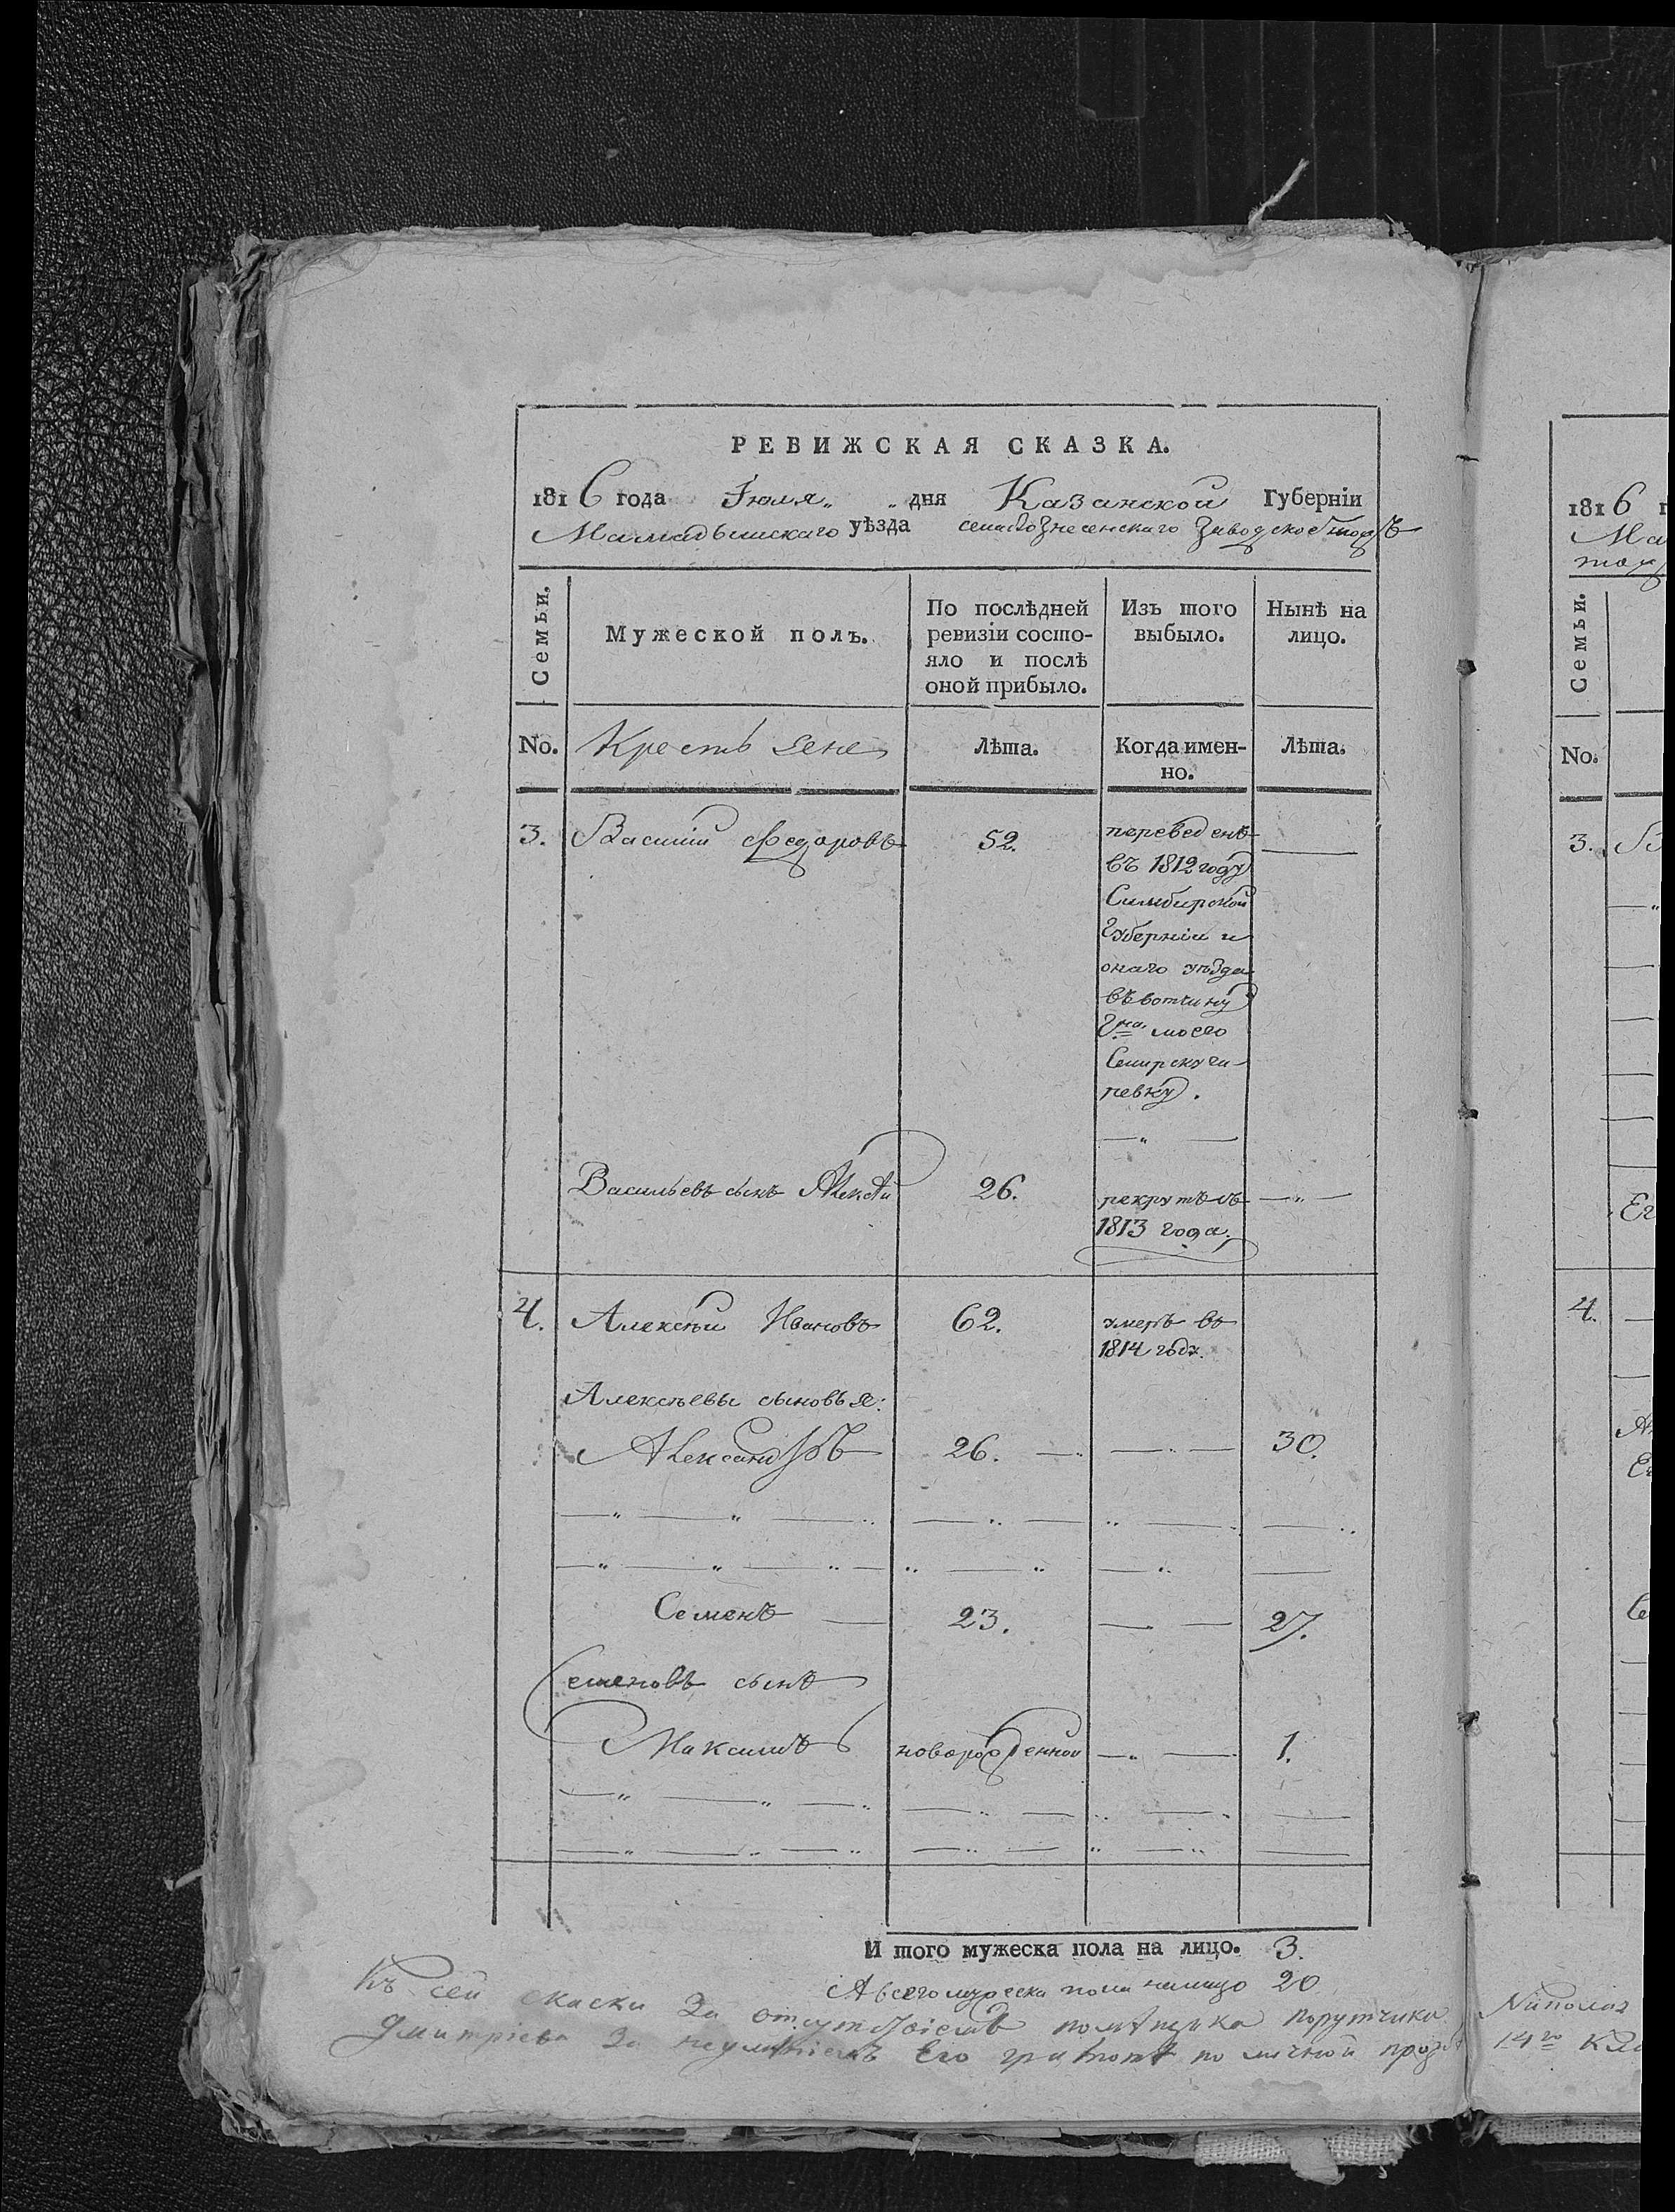 РЕВИЖСКАЯ СКАЗКА.
1816 года Іюля „ „ дня Казанской Губерніи
Мамадышскаго уѣзда
Семьи.
Мужеской полъ.
По послѣдней
ревизіи состо-
яло и послѣ
оной прибыло.
Изъ того
выбыло.
Нынѣ на
лицо.
No. Крестьяне Лѣта. Когда имен-
но.
Лѣта.
3. Василий Федоровъ 52. переведенъ
въ 1812 году
Симбирской
Губерніи и
онаго уѣзда
въ вотчину
Гна. моего
„
Васильевъ сынъ Алексѣй 26. рекрутъ съ „
1813 года.
4. Алексѣй Ивановъ 62. умеръ въ
1814 году.
Алексѣевы сыновья:
Александръ 26. 30.
Семенъ 23. 27.
Семеновъ сынъ
Максимъ новорожденной 1.
И того мужеска пола на лицо. 3.
А всего мужеска пола налицо 20
Къ сей скаски за отсутствіемъ помѣщика Порутчика
Дмитріева за неумѣніемъ Его грамоте по личной прозбе
1816 г
Ма
Семьи.
No.
3.
4.
14го Кла